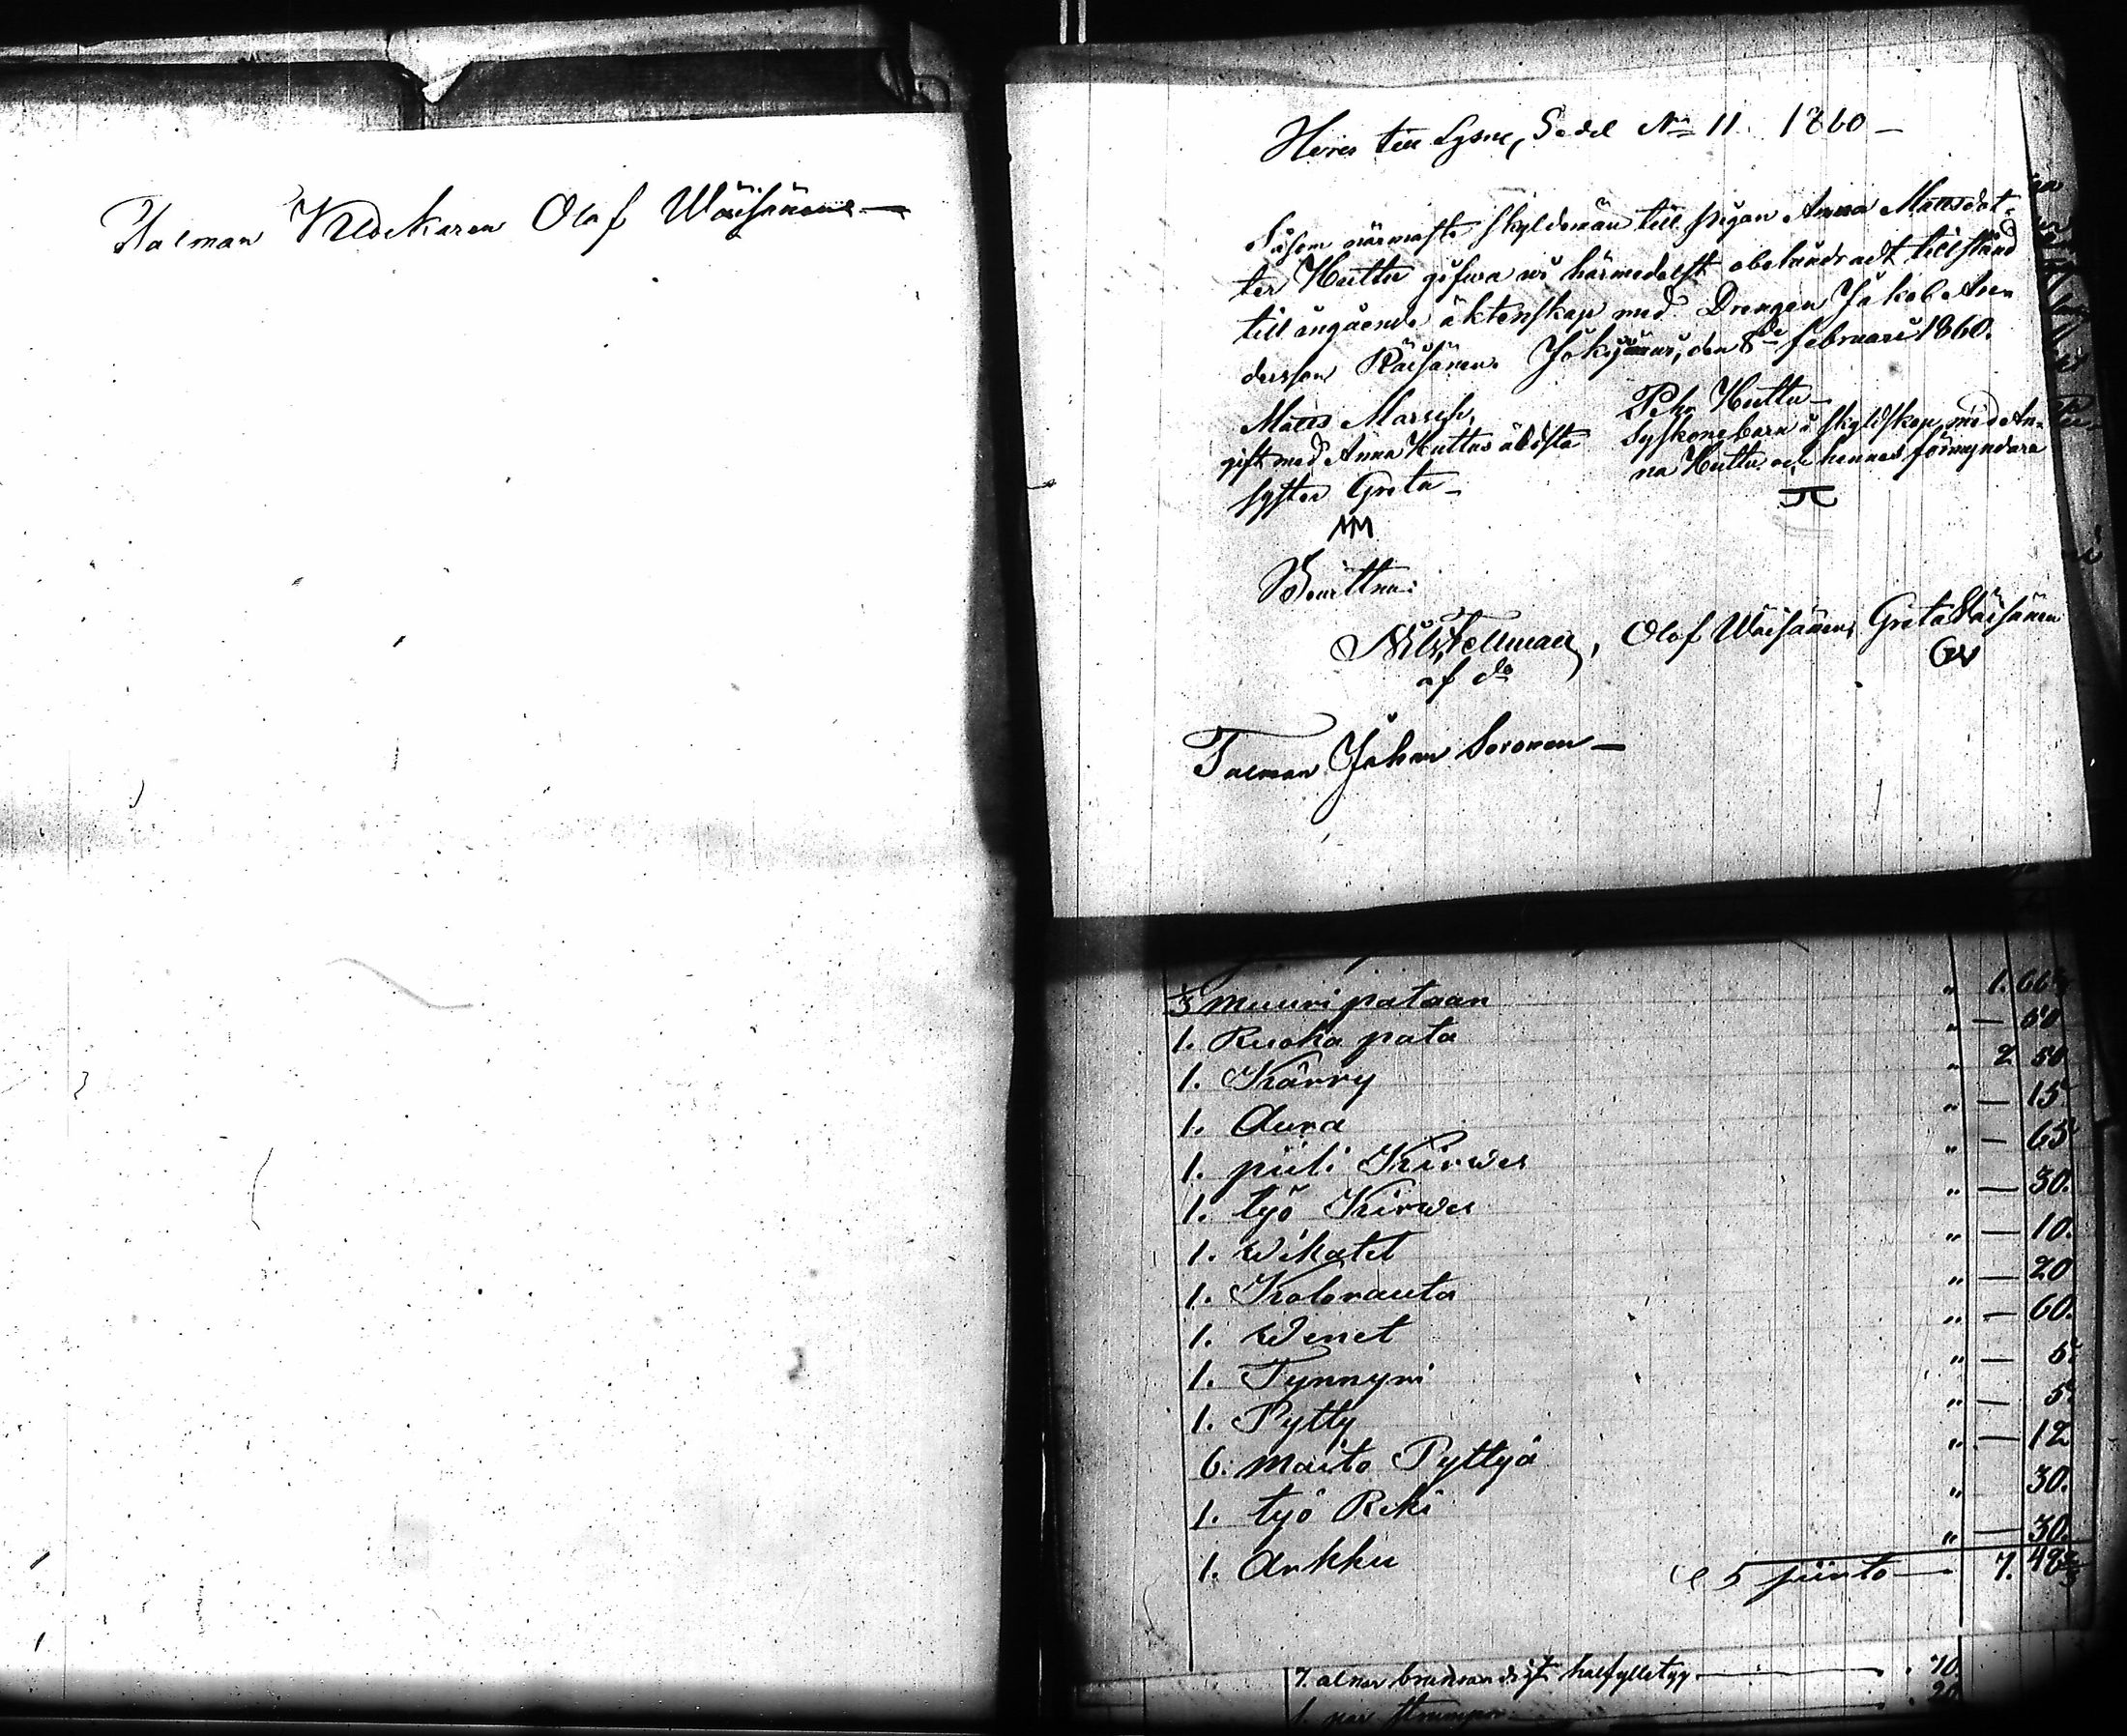 Talman Kldckaren Olof Wäisänen —
Hörer till Lysn, Sedel No 11. 1860 —
Såsom närmaste skyldemän till pigan Anna Mattsdot-
ter Huttu gifwa wi härmedelst obehindradt tillstånd
till ingående äktenskap med Drengen Jakob An-
dersson Räisänen. Jokijärwi, den 8de februari 1860.
Matts Marsch,
gift med Anna Huttus äldsta
syster Greta —
MM
Pehr Huttu —
Syskonebarn i skyldskap med An-
na Huttu och hennes förmyndare
Bewittna:
Nils Fellman, Olof Wäisänen, Greta Wäisänen
af do GW
Talman Johan Soronen —
1/3 muuripataan " 1. 66 2/3
1. Ruoka pata " — 50
1. Kärry " 2 50
1. Aura " — 15
1. piili Kirwes " — 65
1. työ Kirwes " — 30.
1. wikatet " — 10.
1. Kolorauta " — 20
1. Wenet " — 60.
1. Tynnyri " — 5.
1. Pytty " — 5.
6. maito Pyttyä " — 12
1. työ Reki " 30.
1. Arkku " — 30.
5 piirto — 7. 48 2/3
7. alnar halfylletyg — . 70.
1. par strumpor — . 20